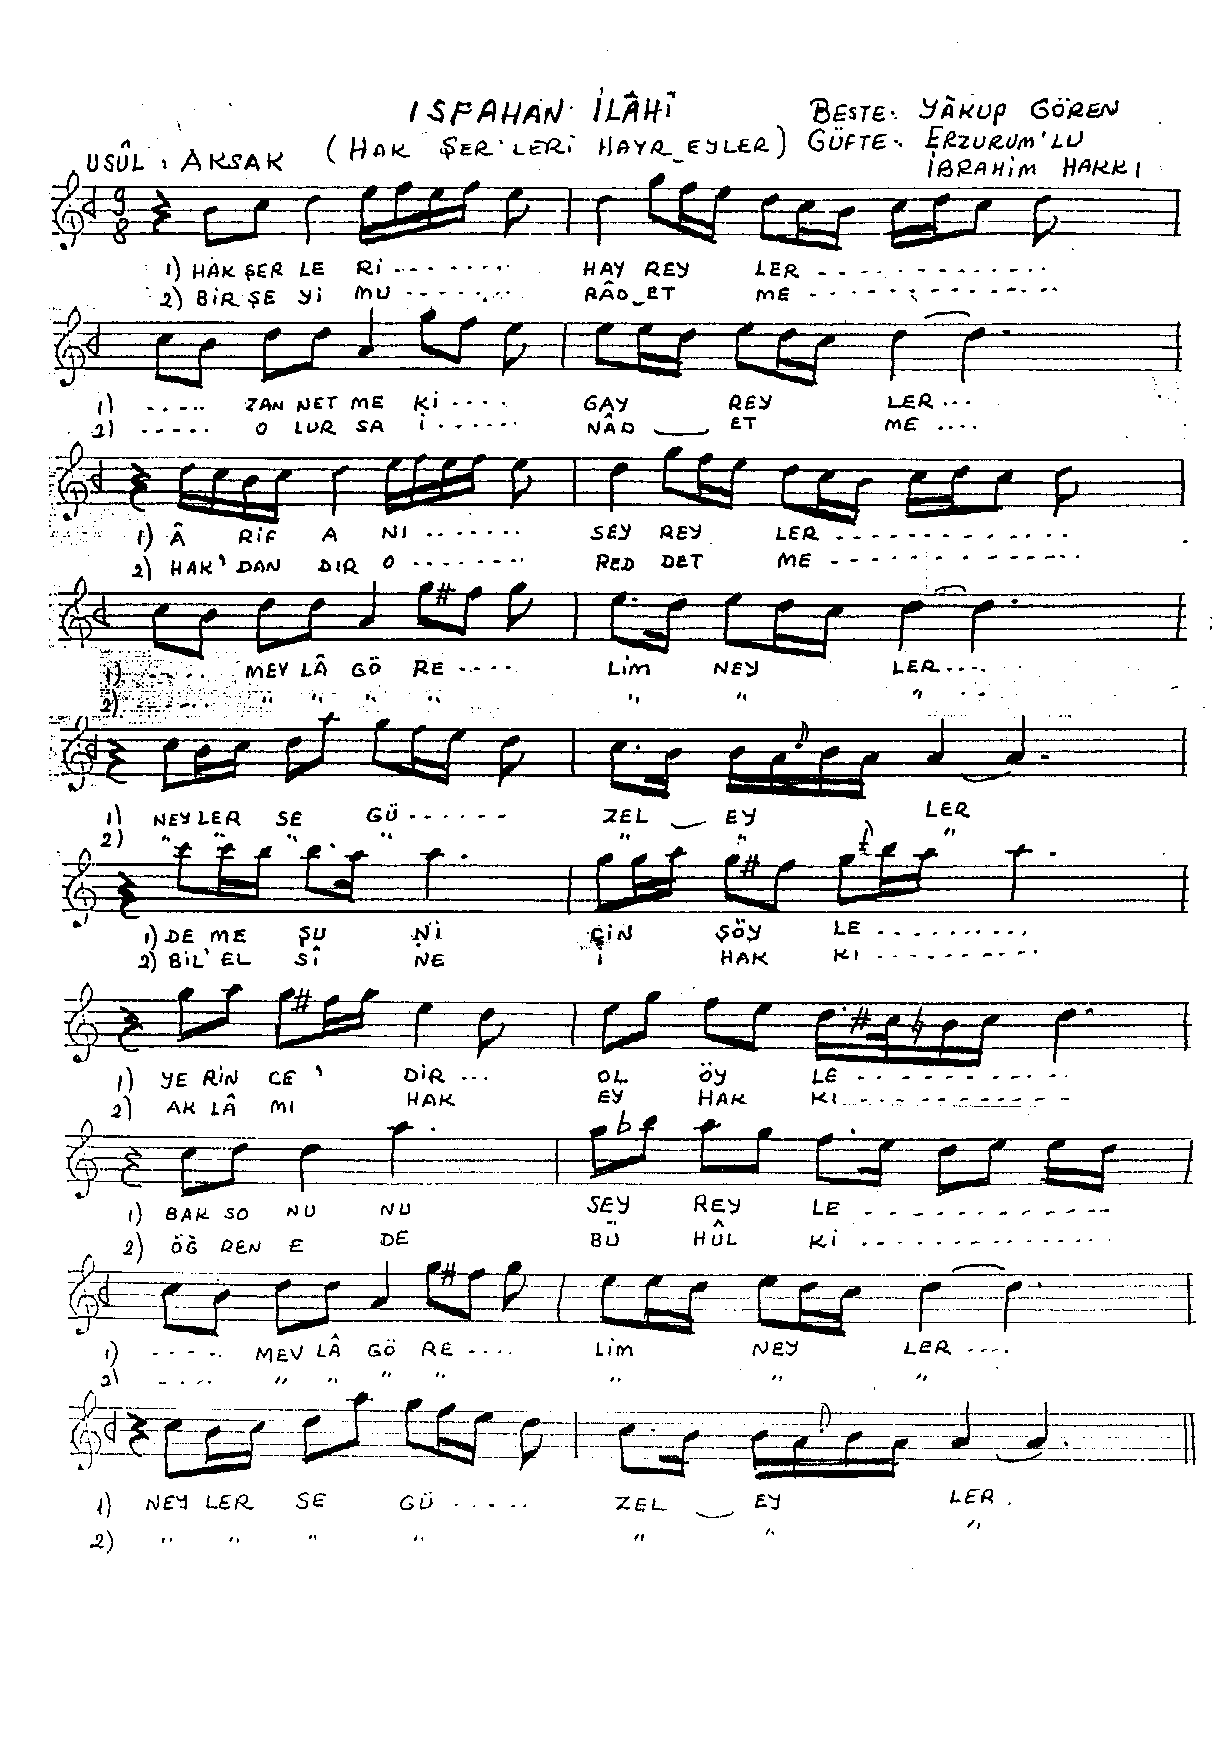 ISFAHAN İLÂHÎ
BESTE: YÂKUP GÖREN
(HAK ŞER'LERİ HAYR_EYLER)
GÜFTE: ERZURUM'LU
İBRAHİM HAKKI
USÛL : AKSAK
9
8
1) HAK ŞER LE Rİ -------- HAY REY LER --------
2) BİR ŞE Yİ MU -------- RÂD_ET ME --------
1) ----- ZAN NET ME Kİ ---- GAY REY LER ---
2) ----- O LUR SA İ ------ NÂD ___ ET ME ----
1) Â RİF A NI ------- SEY REY LER --------
2) HAK' DAN DIR O -------- RED DET ME --------
1) ----- MEV LÂ GÖ RE ----- LİM NEY LER ----
2) ----- " " " " " " " ---
1) NEYLER SE GÜ ------- ZEL __ EY LER
2) " " " " " " "
1) DE ME ŞU Nİ ÇİN ŞÖY LE ----------
2) BİL' EL SÎ NE İ HAK KI ----------
1) YE RİN CE ' DİR --- OL ÖY LE ----------
2) AK LÂ MI HAK EY HAK KI ----------
1) BAK SO NU NU SEY REY LE ----------
2) ÖĞ REN E DE BÜ HÛL Kİ ----------
1) ----- MEV LÂ GÖ RE ---- LİM NEY LER ----
2) ----- " " " " " " "
1) NEY LER SE GÜ ----- ZEL __ EY LER.
2) " " " " " " "